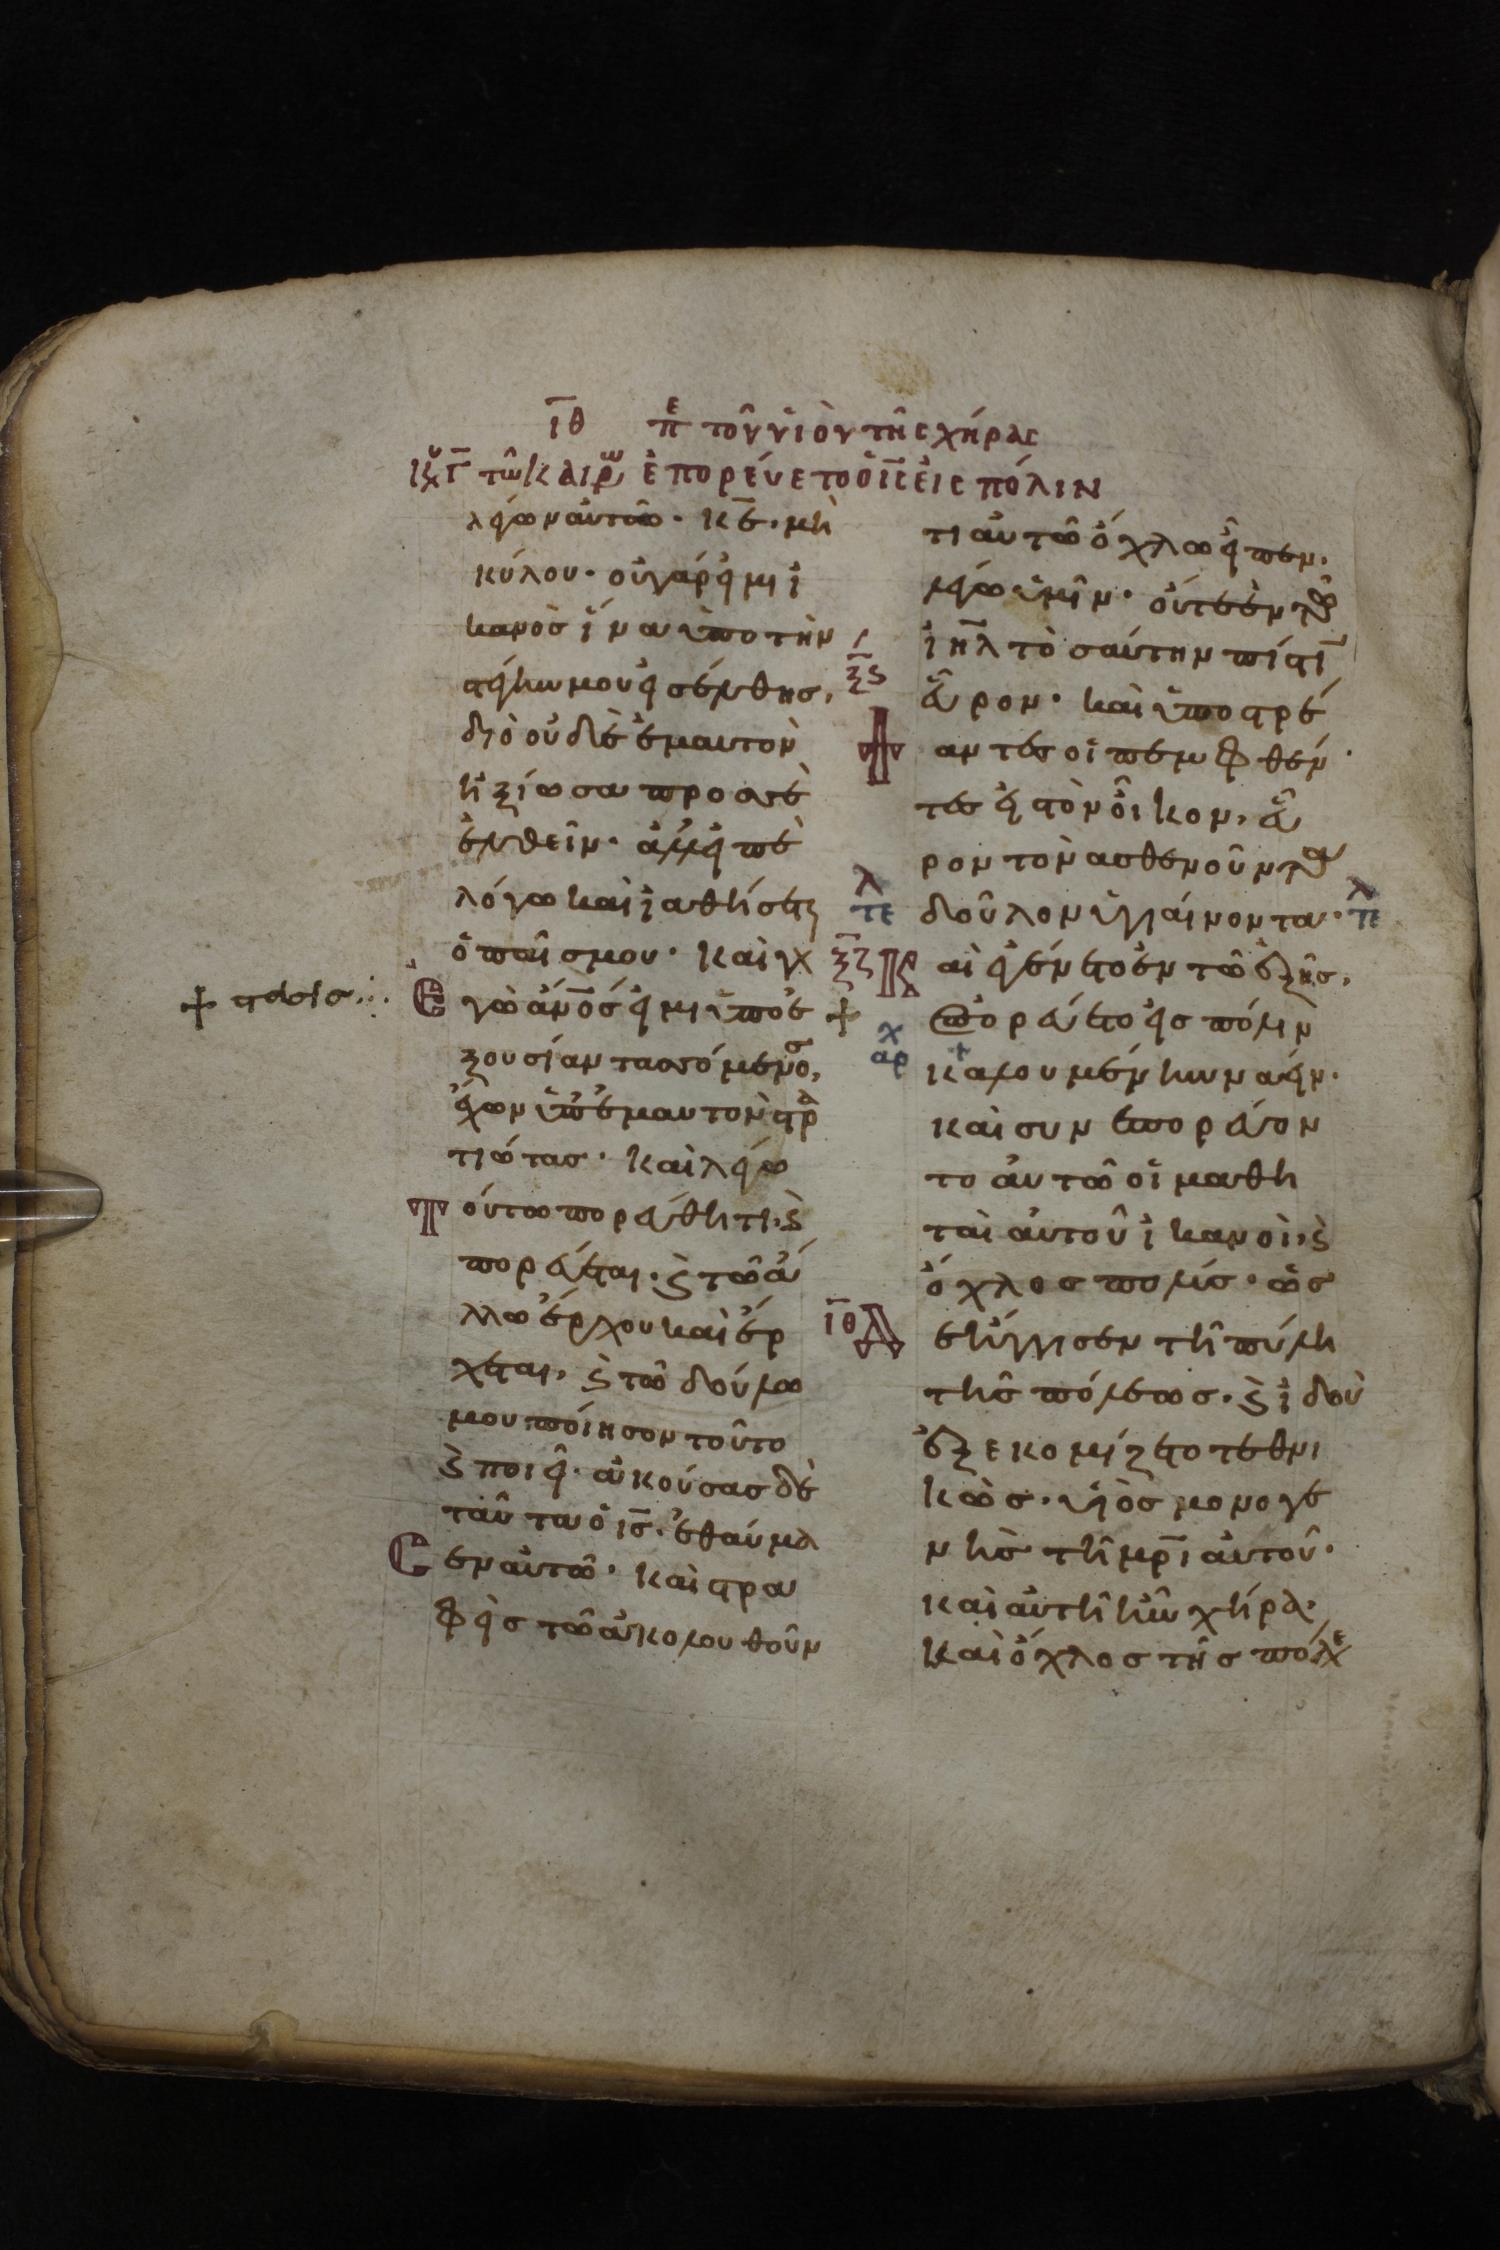 ιθ πε τοῦ υἱοῦ τῆς χήρας
κυ γ τῶ καιρῶ ἐπορεύετο ὁ ις εἰς πόλιν
λέγων αὐτῶ· κε· μὴ
σκύλου· οὐ γάρ εἰμι ἱ
κανὸς ἵνα ὑπο τὴν
στέγην μου εἰσέλθης,
διὸ οὐδὲ ἐμαυτὸν
ἠξίωσα προς σὲ
ἐλθεῖν· ἀλλὰ εἰπὲ
λόγω καὶ ἰαθήσεται
ὁ παῖς μου· καὶ γὰρ
ἐγὼ ἀνος εἰμι ὑπὸ ἐ
ξουσίαν τασσόμενος,
ἔχων ὑπ' ἐμαυτὸν στρα
τιώτας· καὶ λέγω
τούτω πορεύθητι, καὶ
πορεύεται· καὶ τῶ ἄλ
λω ἔρχου καὶ ἔρ
χεται, καὶ τῶ δούλω
μου ποίησον τοῦτο
καὶ ποιεῖ· ἀκούσας δὲ
ταῦτα ὁ ις· ἐθαύμα
σεν αὐτῶ· καὶ στρα
φεὶς τῶ ἀκολουθοῦν
τι αὐτῶ ὄχλω εἶπεν·
λέγω ὑμῖν· οὔτε ἐν τῶ
ιηλ τοσαύτην πίστιν
ξς
εὗρον· καὶ ὑποστρέψ
αντες οἱ πεμφθέν
τες εἰς τὸν οἶκον, εὗ
ρον τὸν ασθενοῦντα
λ τε
δοῦλον ὑγιαίνοντα·
ξζ
καὶ ἐγένετο ἐν τῶ ἑξῆς,
ἐπορεύετο εἰς πόλιν
χ αρ
καλουμένην ναείν·
καὶ συνεπορεύον
το αὐτῶ οἱ μαθη
ταὶ αὐτοῦ ἱκανοὶ, καὶ
ὄχλος πολύς· ὡς
ιθ
δὲ ἤγγισεν τῆ πύλη
τῆς πόλεως· καὶ ἰδοὺ
ἐξεκομίζετο τεθνη
κὼς· υἱὸς μονογε
νὴς τῆ μρι αὐτοῦ·
καὶ αὐτὴ ἦν χήρα·
καὶ ὄχλος τῆς πόλε